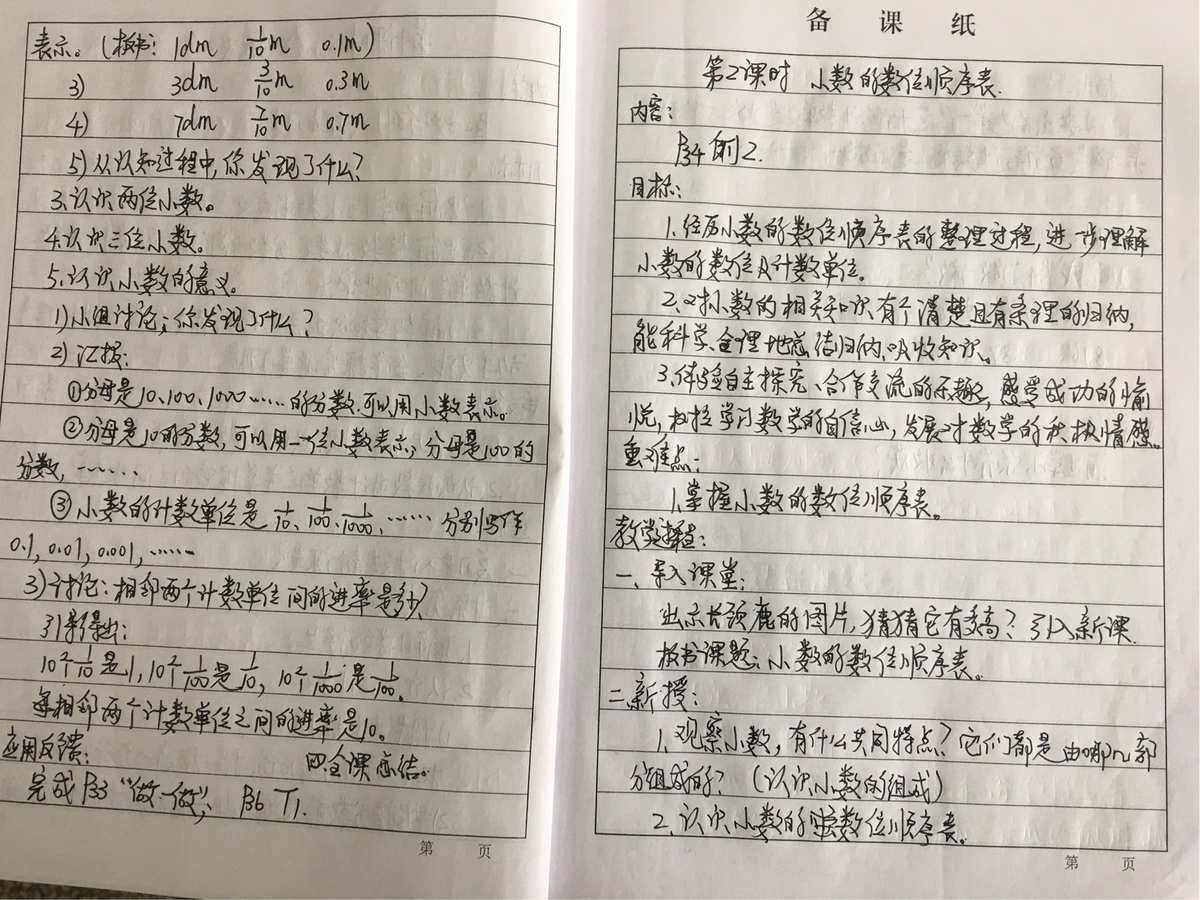 表示。(板书: 1dm 1/10m 0.1m)
3) 3dm 3/10m 0.3m
4) 7dm 7/10m 0.7m
5) 从认知过程中,你发现了什么?
3.认识两位小数。
4.认识三位小数。
5.认识小数的意义。
1)小组讨论;你发现了什么?
2) 汇报:
①分母是10、100、1000……的分数,可以用小数表示。
②分母是10的分数,可以用一位小数表示;分母是100的
分数,……
③小数的计数单位是1/10、1/100、1/1000、……分别写作
0.1, 0.01, 0.001, ……
3)讨论:相邻两个计数单位间的进率是多少?
引导得出:
10个1/10是1, 10个1/100是1/10, 10个1/1000是1/100。
每相邻两个计数单位之间的进率是10。
应用反馈: 四.全课总结。
完成P33 "做一做", P36 T1.
第 页
备课纸
第2课时 小数的数位顺序表.
内容:
P34 例2.
目标:
1.经历小数的数位顺序表的整理过程,进一步理解
小数的数位及计数单位。
2.对小数的相关知识有个清楚且有条理的归纳,
能科学、合理地总结归纳、吸收知识。
3.体验自主探究、合作交流的乐趣,感受成功的愉
悦,树立学习数学的自信心,发展对数学的积极情感。
重难点:
1.掌握小数的数位顺序表。
教学过程:
一、导入课堂:
出示长颈鹿的图片,猜猜它有多高?引入新课.
板书课题:小数的数位顺序表。
二.新授:
1.观察小数,有什么共同特点?它们都是由哪几部
分组成的?(认识小数的组成)
2.认识小数的数位顺序表。
第 页